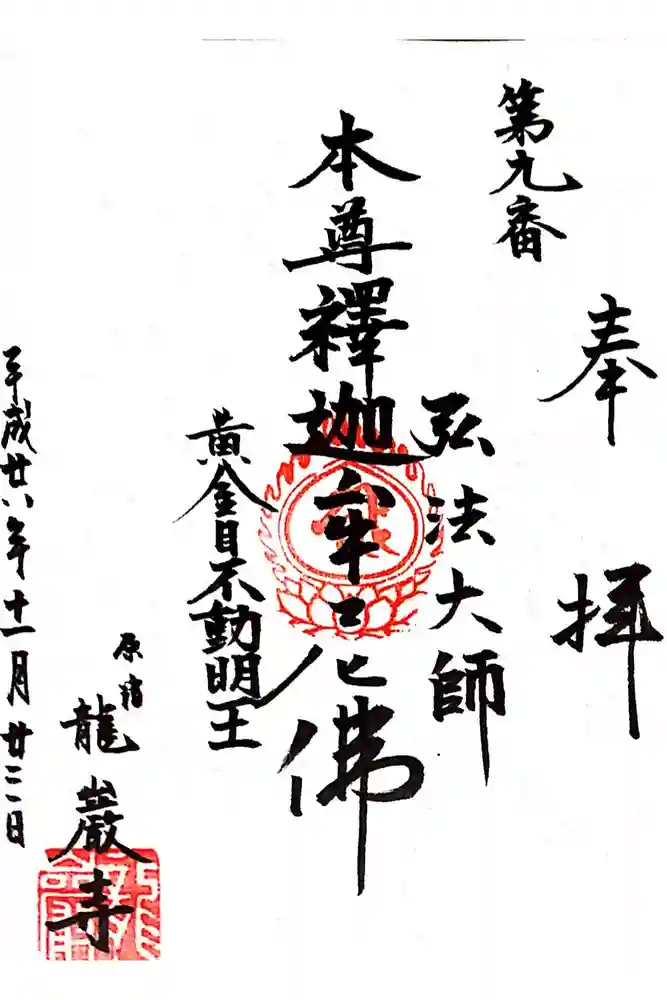 奉拝
第九番
弘法大師
本尊釋迦牟尼佛
黄金目不動明王
原宿
龍巖寺
平成廿六年十一月廿二日